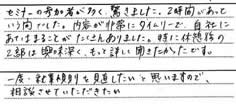 セミナーの参加者が多く、驚きました。2時間があって
いう間でした。内容が非常にタイムリーで、自社に
あてはまることがたくさんありました。特に休憩後の
2部は興味深く、もっと詳しく聞きたかったです。
一度、就業規則を見直したいと思いますので、
相談させていただきたい